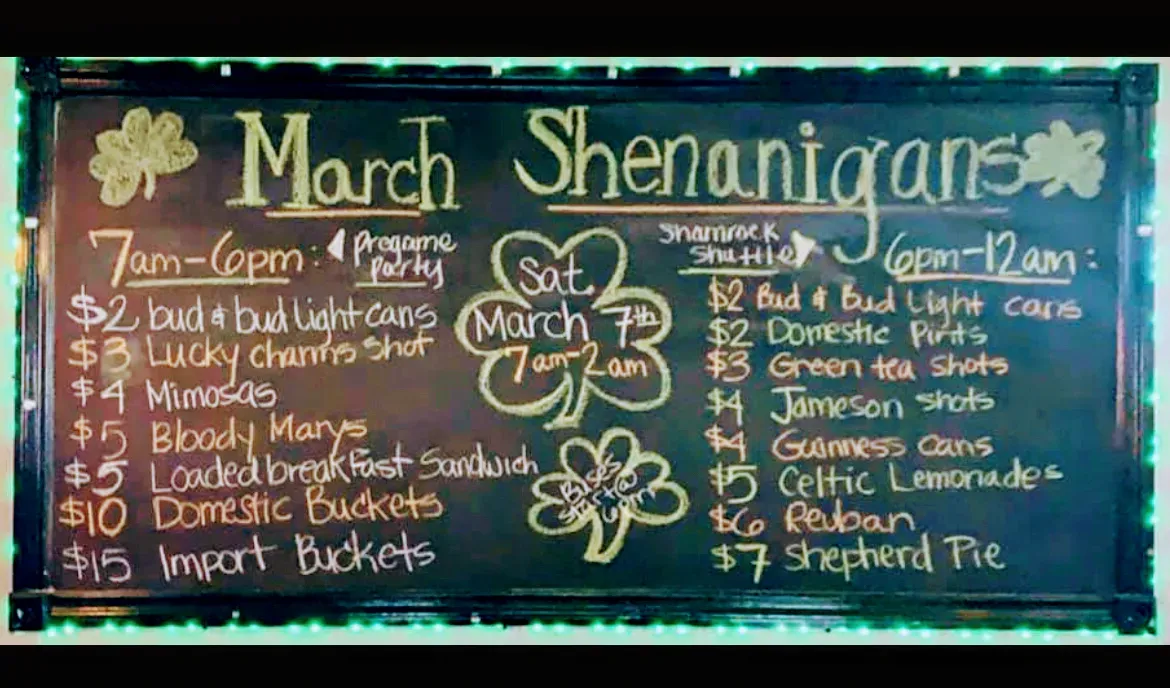 March Shenanigans
7am-6pm:
pregame
party
$2 bud & bud light cans
$3 Lucky charms shot
$4 Mimosas
$5 Bloody Marys
$5 Loaded breakfast Sandwich
$10 Domestic Buckets
$15 Import Buckets
Sat
March 7th
7am-2am
Buses
start@
6pm
Shamrock
Shuttle
6pm-12am:
$2 Bud & Bud Light cans
$2 Domestic Pints
$3 Green tea shots
$4 Jameson shots
$4 Guinness cans
$5 Celtic Lemonades
$6 Reuban
$7 Shepherd Pie